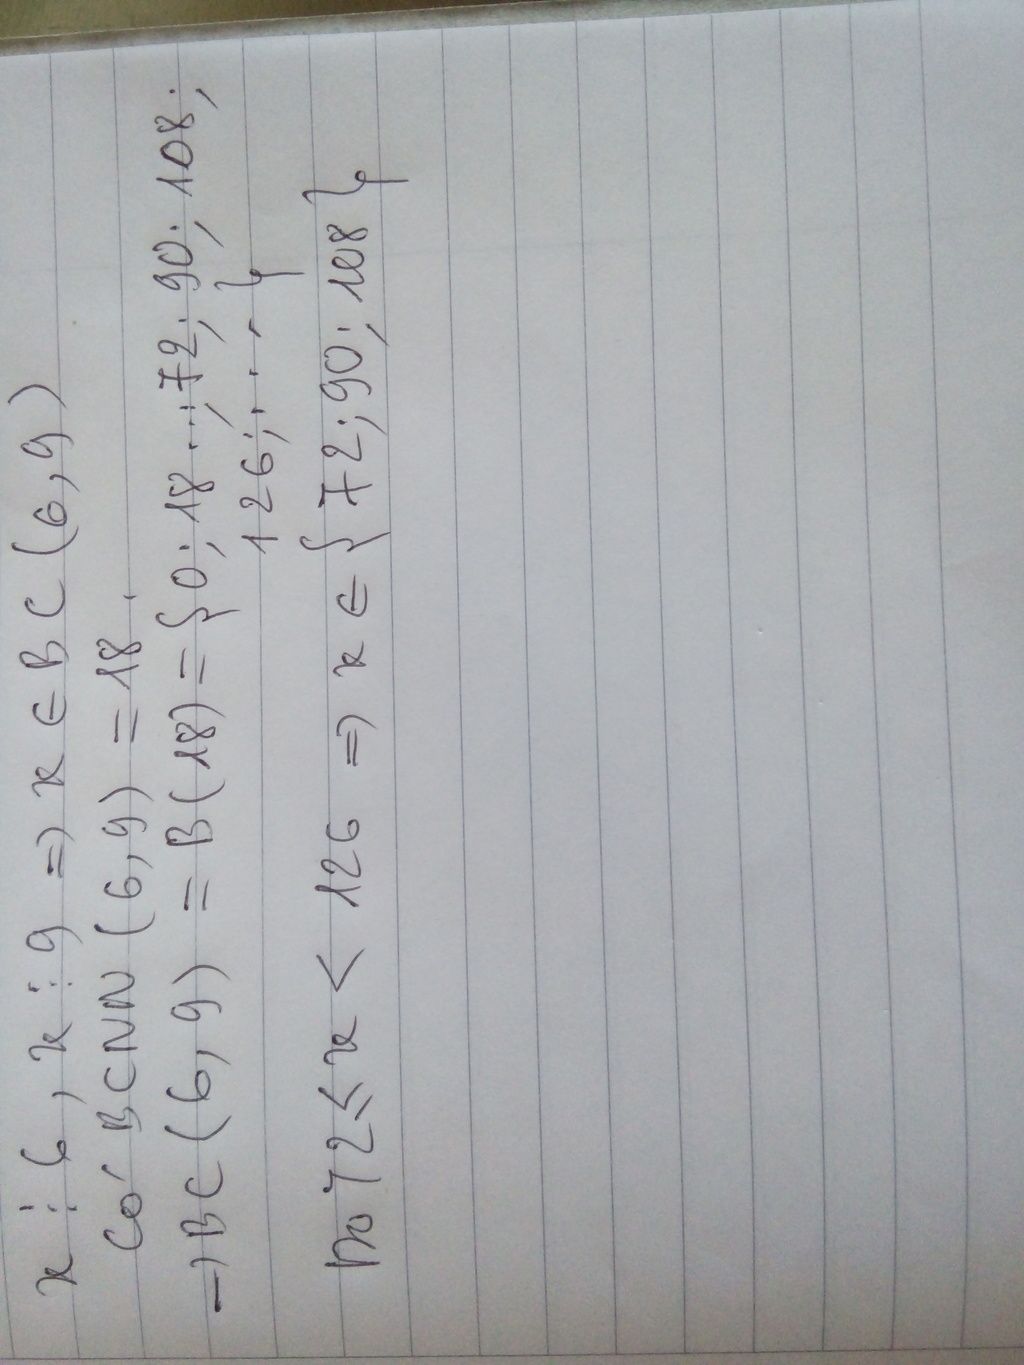 x ⋮ 6, x ⋮ 9 => x ∈ BC (6,9)
Có BCNN (6,9) = 18.
=> BC (6,9) = B(18) = {0; 18 ...; 72; 90; 108;
126; ... }
Do 72 ≤ x < 126 => x ∈ {72; 90; 108}